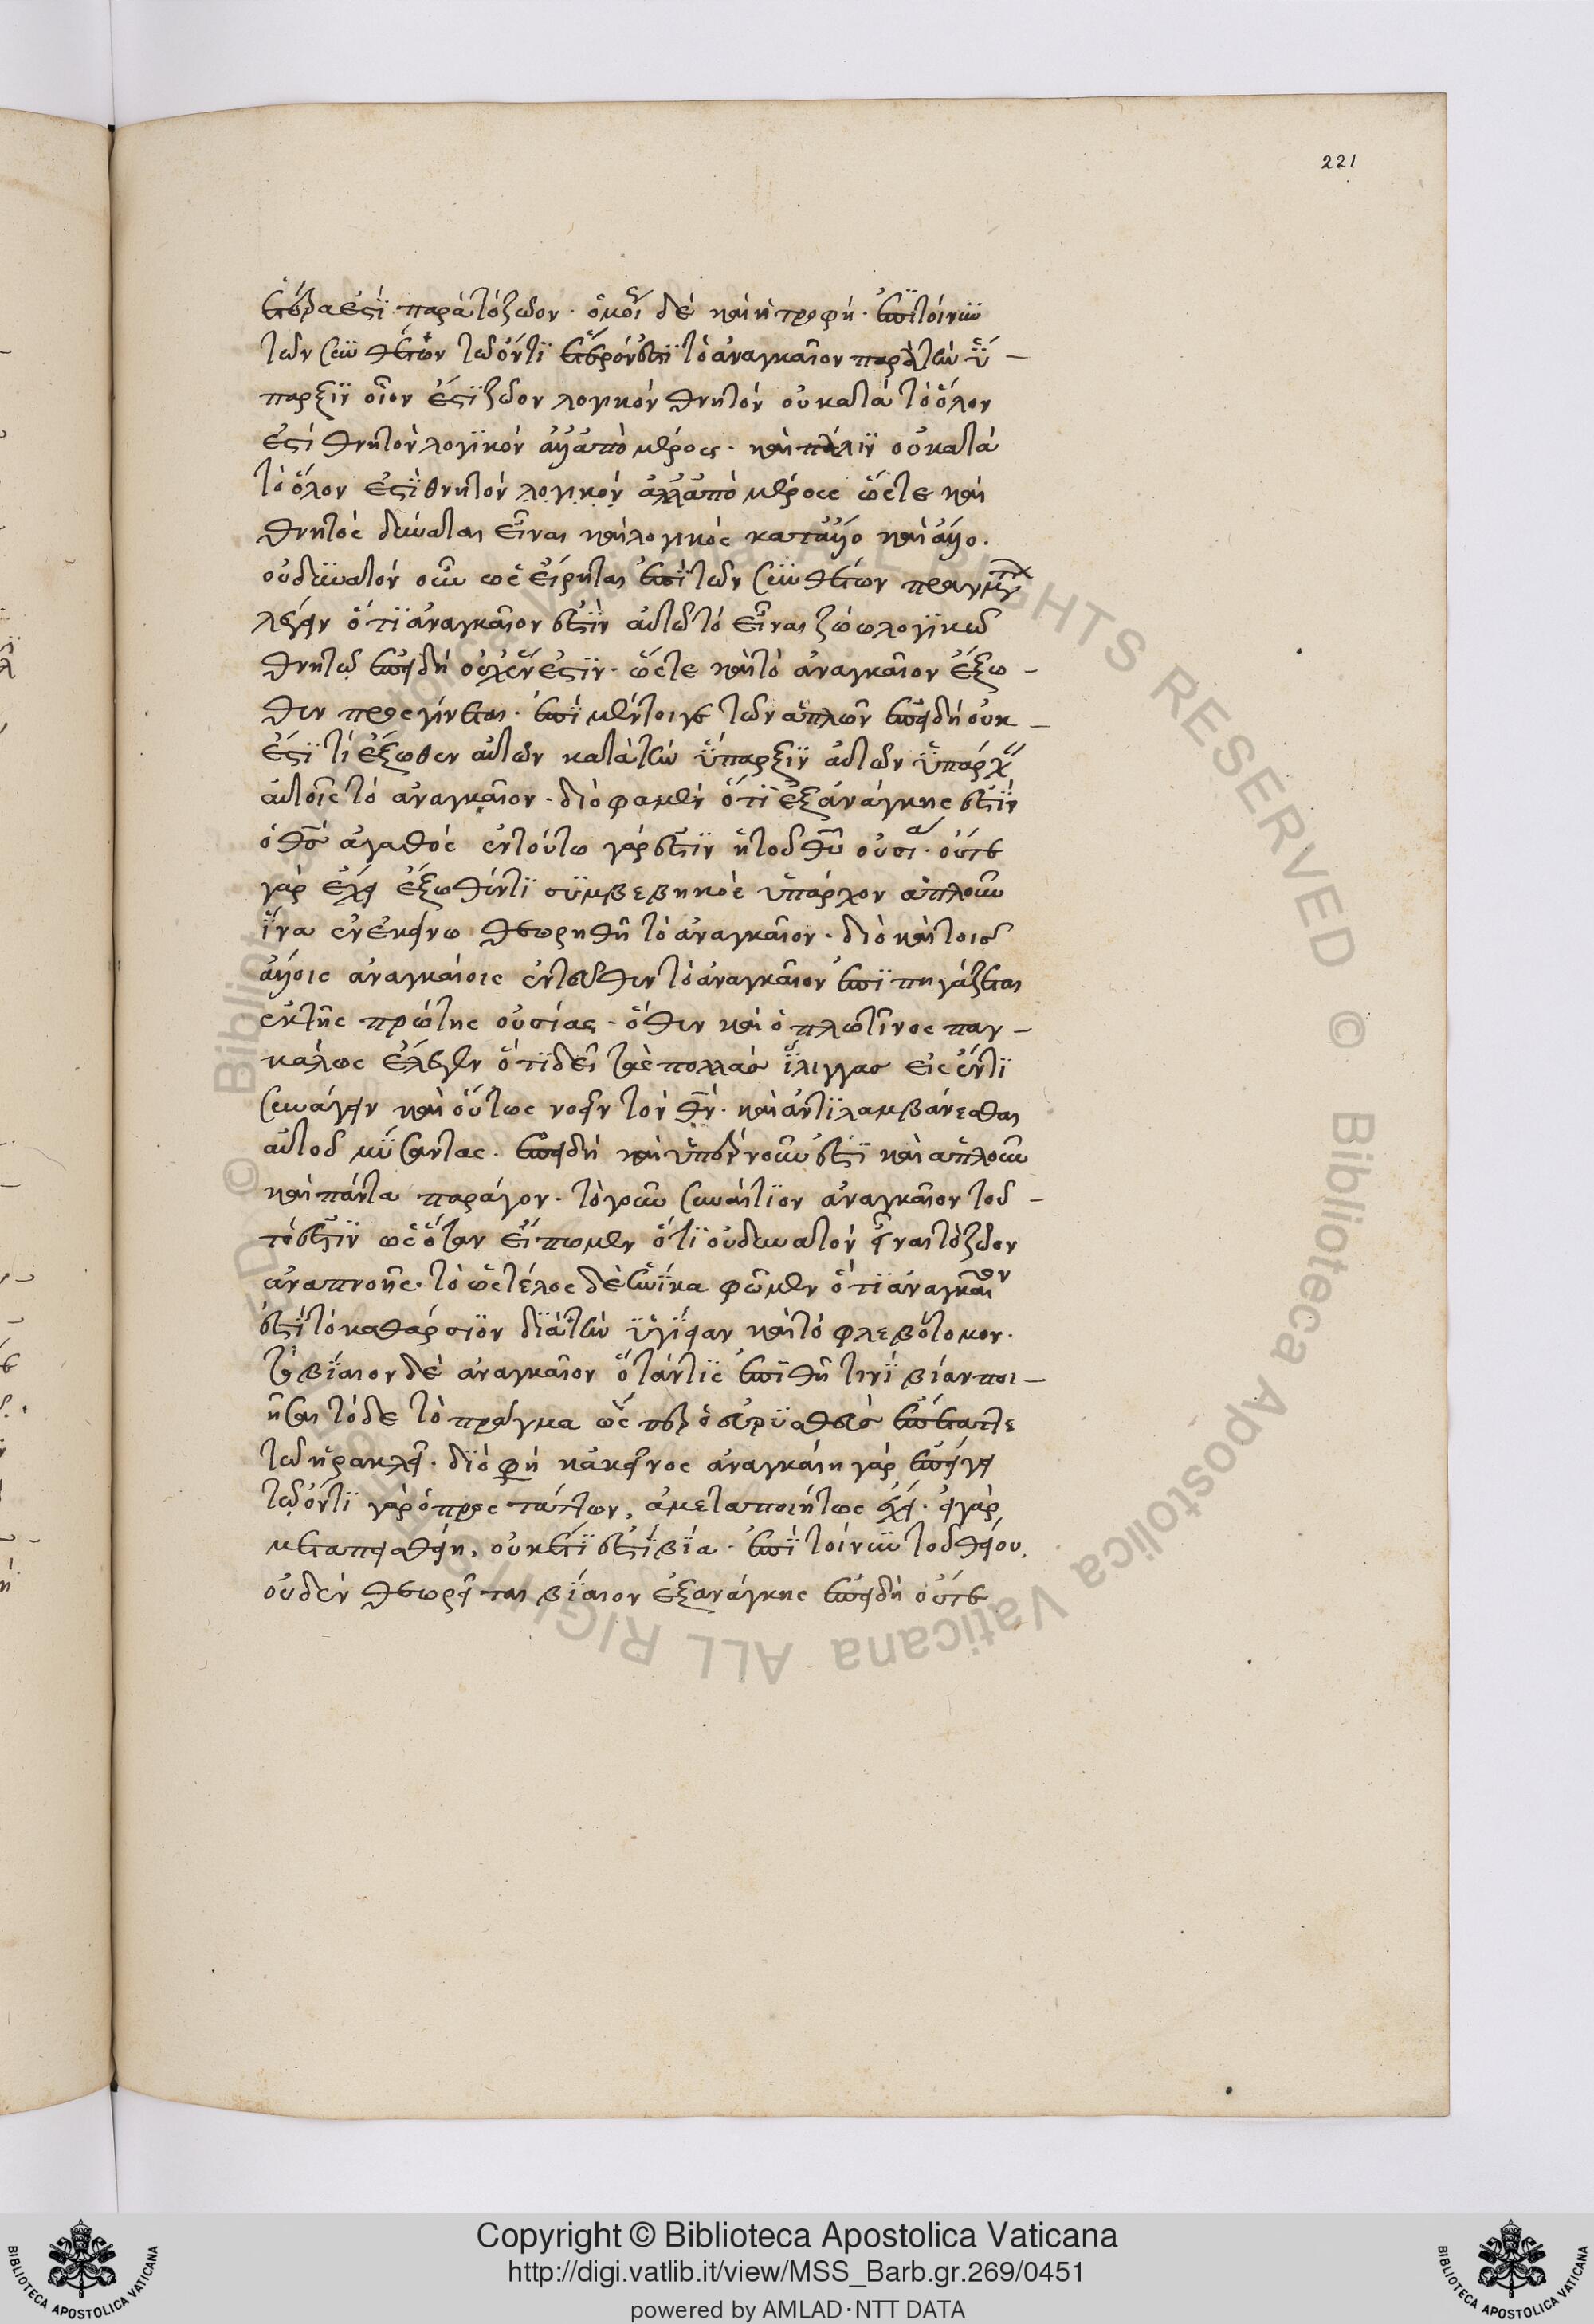 221
ἑτέρα ἐστὶ παρὰ τὸ ζῶον · ὁμοί δὲ καὶ ἡ τροφή · ἐπὶ τοίνυν
τῶν συνθέτων τῶ ὄντι ἕτερόν ἐστι τὸ ἀναγκαῖον παρὰ τὴν ὕ-
παρξιν οἷον ἐστὶ ζῶον λογικὸν θνητόν οὐ κατὰ τὸ ὅλον
ἐστὶ θνητὸν λογικόν ἀλλ' ἀπὸ μέρους · καὶ πάλιν οὐ κατὰ
τὸ ὅλον ἐστὶ θνητὸν λογικὸν ἀλλ' ἀπὸ μέρους ὥστε καὶ
θνητὸς δύναται εἶναι καὶ λογικὸς κατ' ἄλλο καὶ ἄλλο.
οὐ δυνατὸν οὖν ὡς εἴρηται ἐπὶ τῶν συνθέτων πραγμάτ
λέγειν ὅτι ἀναγκαῖον ἐστὶν αὐτῶ τὸ εἶναι ζώω λογικῶ
θνητῶ ἐπειδὴ οὐχ ἕν ἐστιν · ὥστε καὶ τὸ ἀναγκαῖον ἔξω-
θεν προσγίνεται · ἐπὶ μέντοιγε τῶν ἁπλῶν ἐπειδὴ οὐκ-
ἔστι τὶ ἔξωθεν αὐτῶν κατὰ τὴν ὕπαρξιν αὐτῶν ὑπάρχ
αὐτοῖς τὸ ἀναγκαῖον · διὸ φαμὲν ὅτι ἐξ ἀνάγκης ἐστὶν
ὁ θσ ἀγαθός ἐν τούτω γάρ ἐστιν ἡ τοῦ θυ οὐσία · οὔτε
γὰρ ἔχει ἔξωθέν τι συμβεβηκὸς ὑπάρχον ἁπλοῦν
ἵνα ἐν ἐκείνω θεωρηθῆ τὸ ἀναγκαῖον · διὸ καὶ τοῖς
ἄλλοις ἀναγκαίοις ἐντεῦθεν τὸ ἀναγκαῖον ἐπιπηγάζεται
ἐκ τῆς πρώτης οὐσίας · ὅθεν καὶ ὁ πλωτῖνος παγ-
κάλως ἔλεγεν ὅτι δεῖ τὰς πολλὰς ἴλιγγας εἰς ἕν τι
συνάγειν καὶ οὕτως νοεῖν τὸν θν · καὶ ἀντιλαμβάνεσθαι
αὐτοῦ μύσαντας · ἐπειδὴ καὶ ὑπὲρ νοῦν ἐστὶ καὶ ἁπλοῦν
καὶ πάντα παράγον · τὸ γοῦν συναίτιον ἀναγκαῖον τοῦ-
τό ἐστιν ὡς ὅταν εἴπωμεν ὅτι οὐ δυνατὸν εἶναι τὸ ζῶον
ἀναπνοῆς · τὸ ὡς τέλος δὲ ἡνίκα φῶμεν ὅτι ἀναγκαῖον
ἐστὶ τὸ καθάρσιον διὰ τὴν ὑγίειαν καὶ τὸ φλεβότομον.
τὸ βίαιον δὲ ἀναγκαῖον ὅτάν τις ἐπιθῆ τινὶ βίαν ποι-
ῆσαι τόδε τὸ πρᾶγμα ὡς περ ὁ εὐρυσθεὺς ἐπέταττε
τῶ ἡρακλεῖ · διό φη κἀκεῖνος ἀναγκαίη γὰρ ἐπείγει
τῶ ὄντι γὰρ ὁ προστάττων, ἀμεταποιήτως ἔχει · εἰ γὰρ
μεταπεισθείη, οὐκέτι ἐστὶ βία · ἐπὶ τοίνυν τοῦ θείου,
οὐδὲν θεωρεῖται βίαιον ἐξ ἀνάγκης ἐπειδὴ οὔτε
Copyright © Biblioteca Apostolica Vaticana
http://digi.vatlib.it/view/MSS_Barb.gr.269/0451
powered by AMLAD·NTT DATA